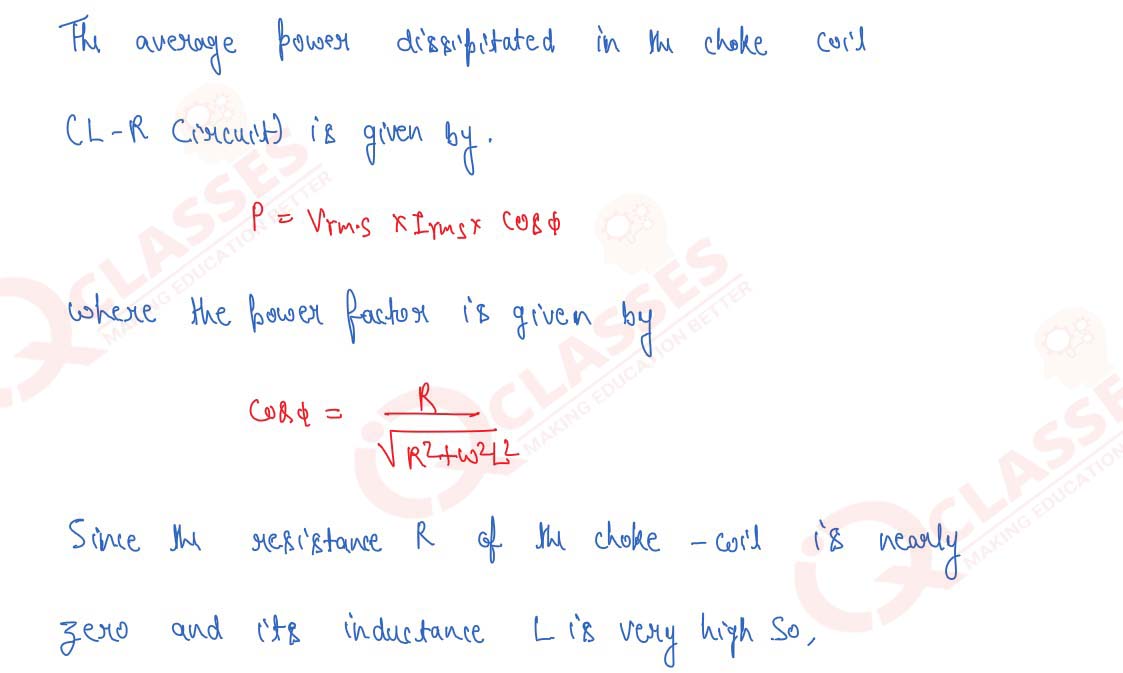 The average power dissipitated in the choke coil
(L-R Circuit) is given by.
P = Vrm.s x Irms x cosϕ
where the power factor is given by
cosϕ = R / √R²+ω²L²
Since the resistance R of the choke - coil is nearly
zero and its inductance L is very high so,
CLASSES
MAKING EDUCATION BETTER
CLASSES
MAKING EDUCATION BETTER
CLASSES
MAKING EDUCATION